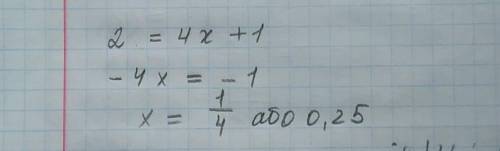 2 = 4x + 1
- 4x = - 1
x = 1/4 або 0,25